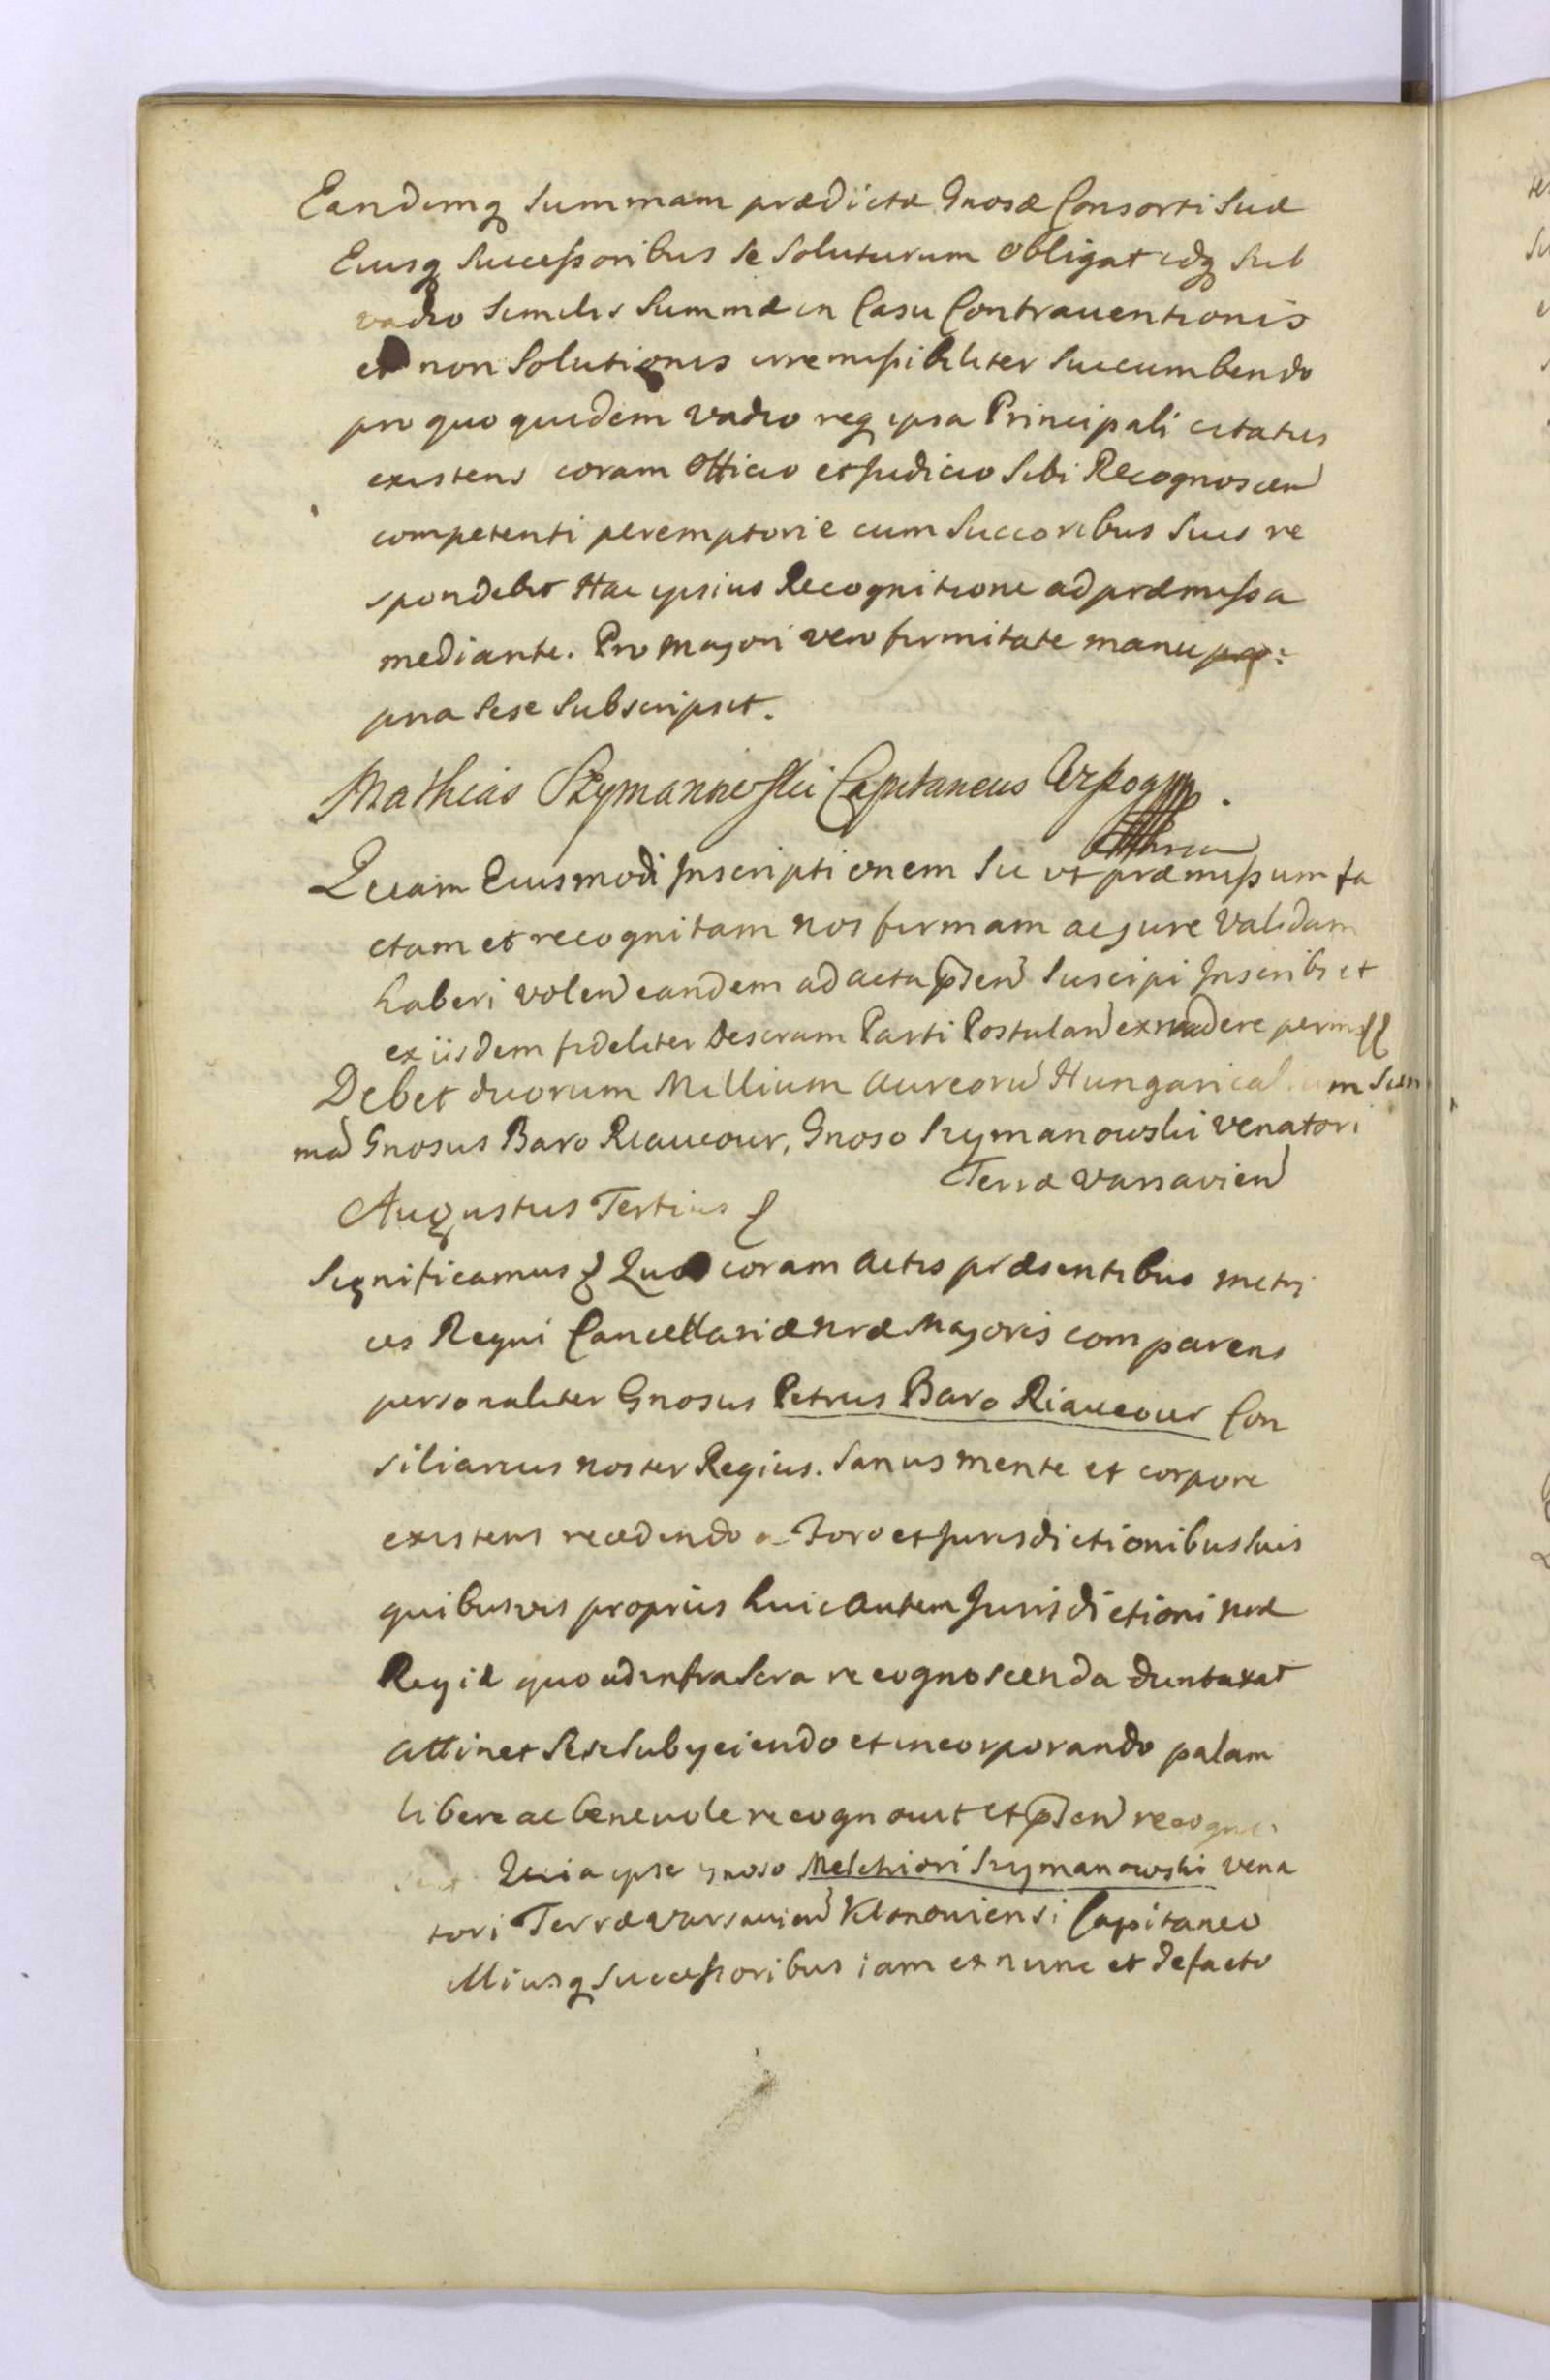 Eandemq Summam prædictæ Gnosæ Consorti Suæ
Eiusq Successoribus se Soluturum obligat idq Sub
vadio Similis Summæ in Casu Contraventionis
et non Solutionis irremissibiliter Succumbendo
pro quo quidem vadio req ipsa Principali citatus
existens coram Officio et Judicio Sibi Recognoscen
competenti peremptorie cum Succoribus Suis re
spondebit Hac ipsius Recognitione ad præmissa
mediante. Pro Majori vero firmitate manu
pria sese Subscripsit.
Mathias Szymanowski Capitaneus
Quam Eiusmodi Inscriptionem Sic vt præmissum fa
ctam et recognitam nos firmam ac jure Validam
haberi volen eandem ad acta psen Suscipi Inscribi et
ex iisdem fideliter Descram Parti Postulan extradere
Debet duorum Millium Aureoru Hungaricalium Sum
ma Gnosus Baro Riaucour, Gnoso Szymanowski Venatori
Terræ Varsavien
Augustus Tertius
Significamus Quod coram Actis præsentibus Metri
ces Regni Cancellariæ nræ Majoris comparens
personaliter Gnosus Petrus Baro Riaucour Con
siliarius noster Regius. Sanus mente et corpore
existens recedendo a Foro et Jurisdictionibus Suis
quibusvis propriis huic autem Jurisdictioni nræ
Regiæ quo ad infra Scra recognoscenda duntaxat
attinet Sese Subyciendo et incorporando palam
libere ac benevole recognovit et psen recognos
cit Quia ipse Gnoso Melchiori Szymanowski Vena
tori Terræ Varsavien Klonoviensi Capitaneo
Illiusq Successoribus iam ex nunc et defacto